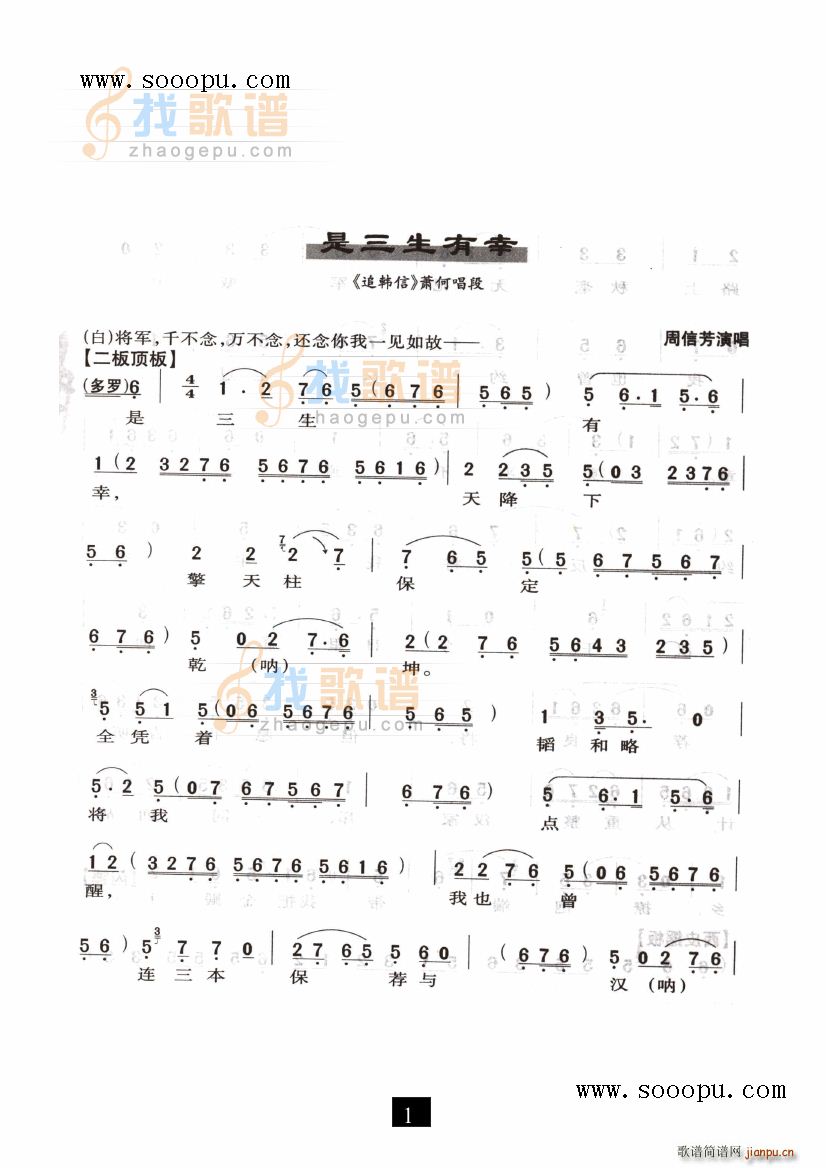 www.sooopu.com
找歌谱
zhaogepu.com
是三生有幸
《追韩信》萧何唱段
(白)将军,千不念,万不念,还念你我一见如故——
周信芳演唱
【二板顶板】
(多罗)6 | 4/4 1·2 76 5(676 | 565) 5 6·1 5·6 |
是 三 生 有
找歌谱
zhaogepu.com
1(2 3276 5676 5616) | 2 235 5(03 2376 |
幸, 天降 下
56) 2 2 7 2 7 | 7 65 5(5 67567 |
擎 天 柱 保 定
676) 5 02 7·6 | 2(2 76 5643 235) |
乾 (呐) 坤。
找歌谱
zhaogepu.com
3 5 51 5(06 5676 | 565) 1 35· 0 |
全 凭 着 韬 和 略
5·2 5(07 67567 | 676) 5 6·1 5·6 |
将 我 点
12 (3276 5676 5616) | 2 276 5(06 5676 |
醒, 我也 曾
56) 5 3 7 70 | 02 765 5 60 | (676) 5 02 76 |
连 三 本 保 荐 与 汉 (呐)
www.sooopu.com
1
歌谱简谱网
jianpu.cn